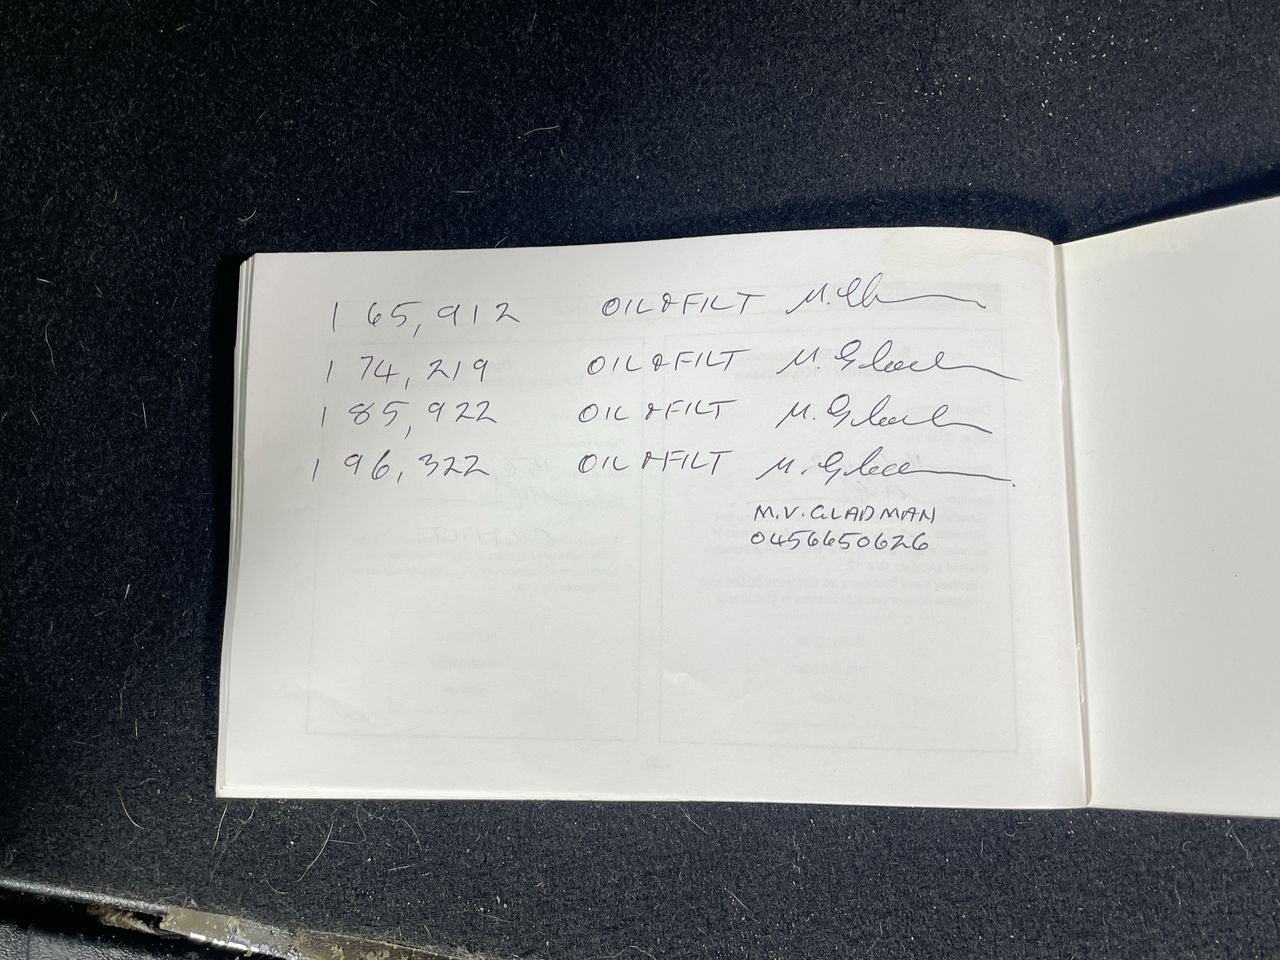 165,912 OIL & FILT M. Gl
174,219 OIL & FILT M. Glad
185,922 OIL & FILT M. Glad
196,322 OIL & FILT M. Glad
M.V. GLADMAN
0456650626